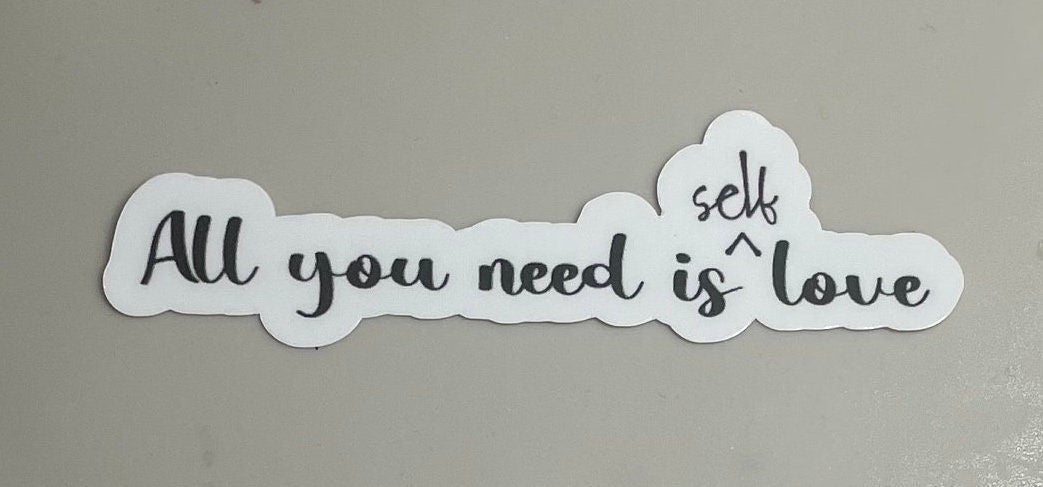 All you need is ^ love
self